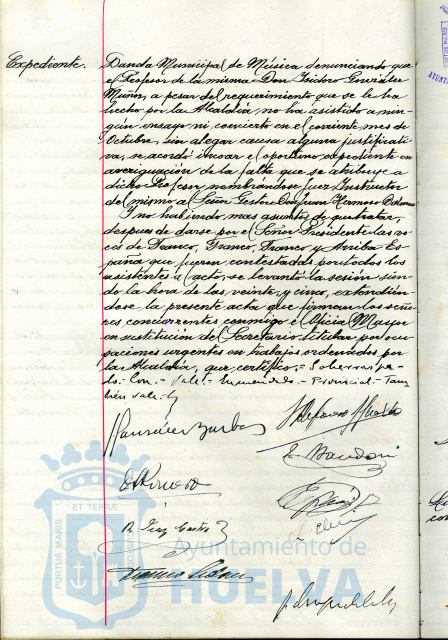 Expediente.
Banda Municipal de Música denunciando que
el Profesor de la misma Don Isidoro González
Muñoz, a pesar del requerimiento que se le ha
hecho por la Alcaldía, no ha asistido a nin-
gún ensayo ni concierto en el corriente mes de
Octubre, sin alegar causa alguna justificati-
va, se acordó incoar el oportuno expediente en
averiguación de la falta que se atribuye a
dicho Profesor nombrándose Juez Instructor
del mismo al Señor Gestor Don Juan Hermoso
Y no habiendo mas asuntos de que tratar,
despues de darse por el Señor Presidente las vo-
ces de Franco, Franco, Franco y Arriba Es-
paña que fueron contestadas por todos los
asistentes al acto, se levantó la sesión sien-
do la hora de las veinte y cinco, extendién-
dose la presente acta que firman los seño-
res concurrentes conmigo el Oficial Mayor
en sustitución del Secretario titular por ocu-
paciones urgentes en trabajos ordenados por
la Alcaldía, que certifico.= Sobrerraspa-
do= Con.- Vale.- Enmendado.- Provincial- Tam-
bién vale.
PORTUS MARIS
ET TERRÆ
Ayuntamiento de
HUELVA